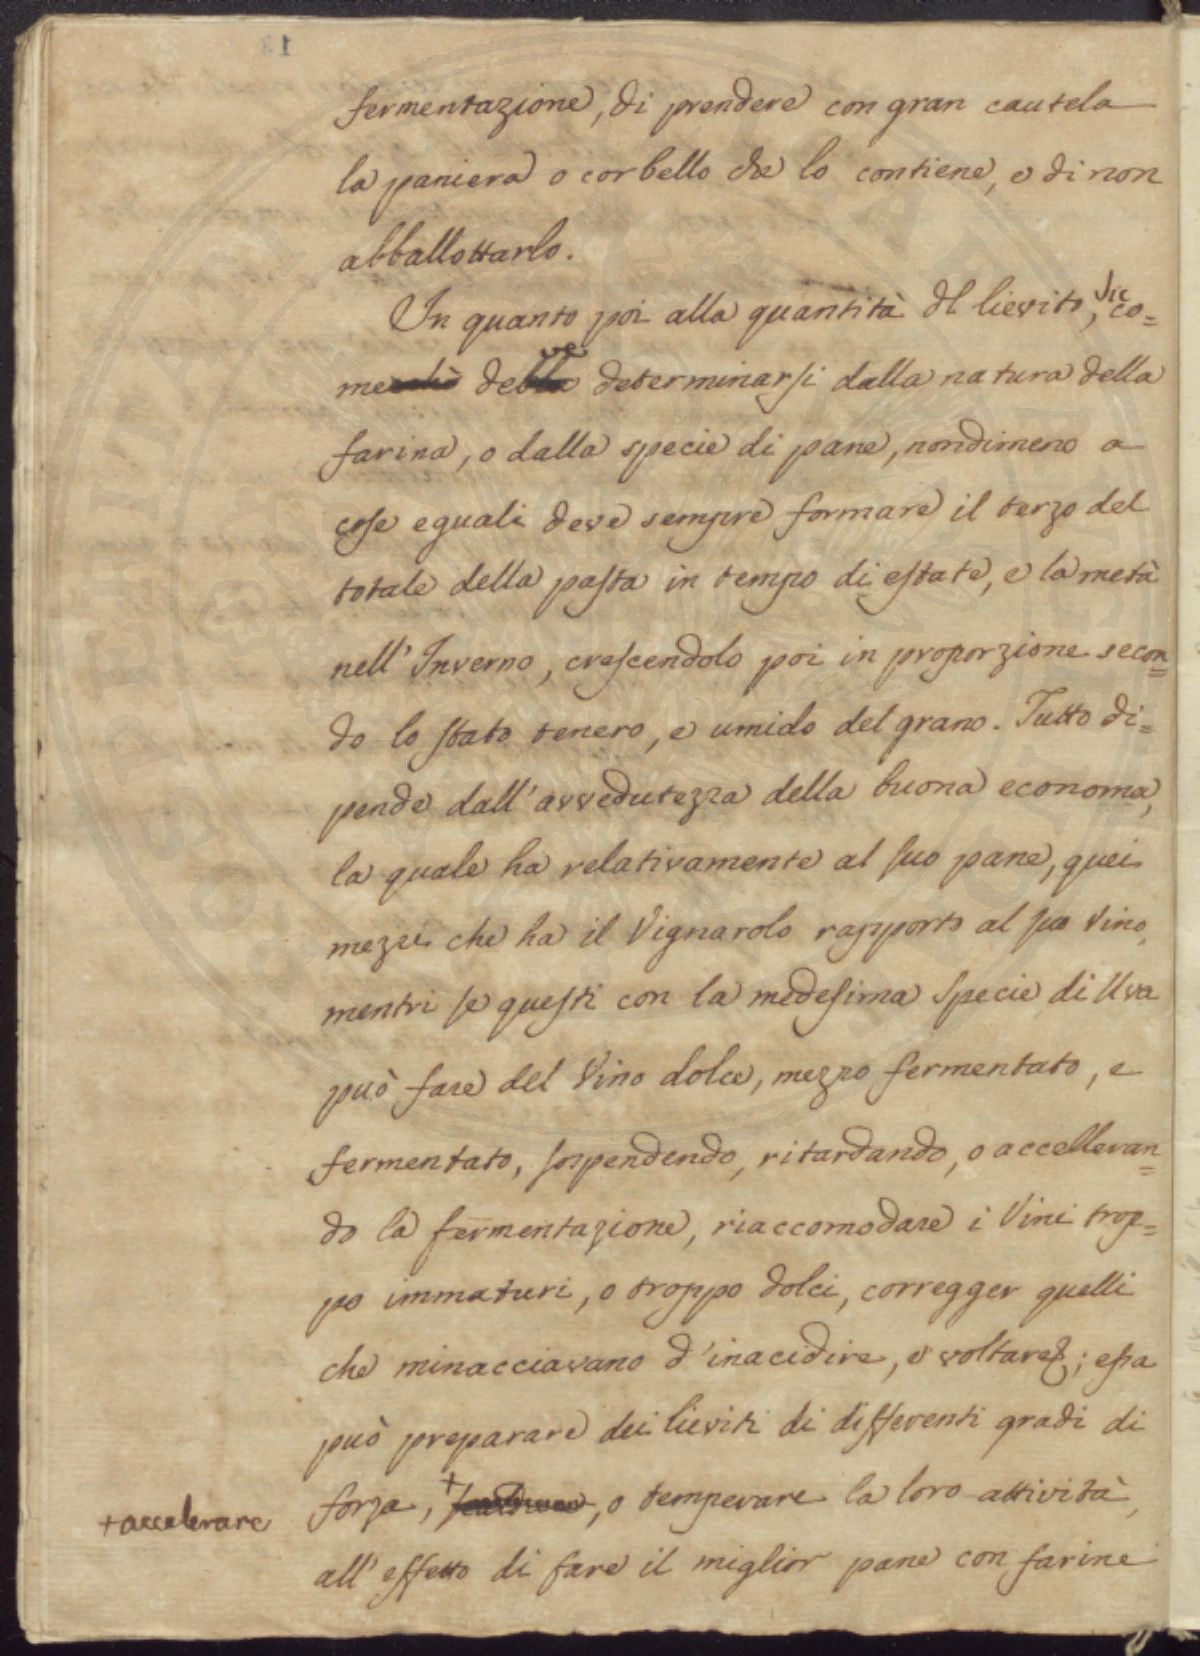 fermentazione, di prendere con gran cautela
la paniera o corbello che lo contiene, e di non
abballottarlo.
In quanto poi alla quantità del lievito, sic co=
me deve determinarsi dalla natura della
farina, o dalla specie di pane, nondimeno a
cose eguali deve sempre formare il terzo del
totale della pasta in tempo di estate, e la metà
nell' Inverno, crescendolo poi in proporzione secon=
do lo stato tenero, e umido del grano. Tutto di=
pende dall' avvedutezza della buona economa,
la quale ha relativamente al suo pane, quei
mezzi che ha il Vignarolo rapporto al suo Vino,
mentri se questi con la medesima Specie di Uva
può fare del Vino dolce, mezzo fermentato, e
fermentato, sospendendo, ritardando, o accelleran=
do la fermentazione, riaccomodare i Vini trop=
po immaturi, o troppo dolci, corregger quelli
che minacciavano d'inacidire, e voltare; essa
può preparare dei lieviti di differenti gradi di
forza, + , o temperare la loro attività,
+ accelerare
all' effetto di fare il miglior pane con farine